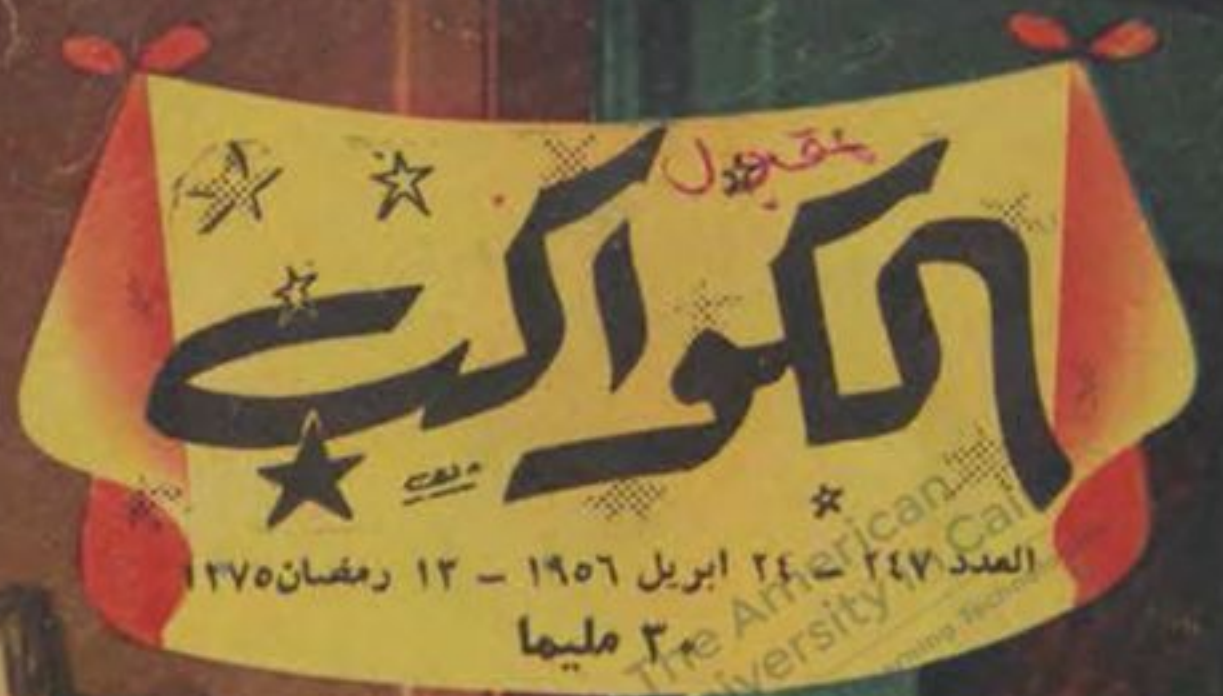 مقبول
الكواكب
العدد ٢٤٧ – ٢٤ ابريل ١٩٥٦ – ١٣ رمضان ١٣٧٥
٣٠ مليما
The American
University in Cairo